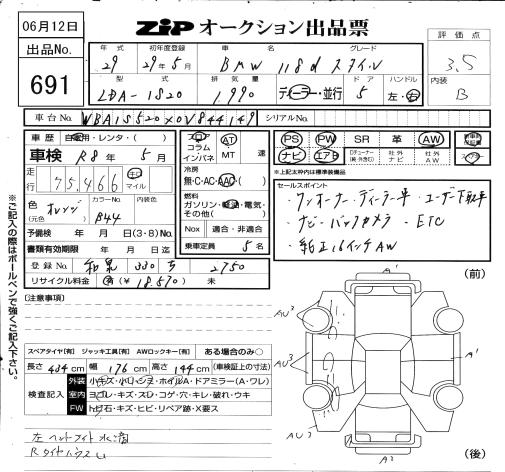 06月12日
ZIP オークション出品票
出品No.
691
年式 初年度登録 車名 グレード
29 29年5月 BMW 118d スタイル
型式 排気量 ドア ハンドル
LDA-1S20 1,990 ディーラー・並行 5 左・右
評価点
3.5
内装
B
車台No. WBA1S520X0V844149 シリアルNo.
車歴 自家用・レンタ・( )
車検 R8年5月
走行 75,466 キロ マイル
色 オレンジ カラーNo. B44
(元色)
予備検 年 月 日(3・8)No.
書類有効期限 年 月 日迄
登録No. 和泉 330 ち 2750
リサイクル料金 有(¥ 18,570) 未
フロア コラム インパネ
AT MT 速
冷房
無・C・AC・AAC・( )
燃料
ガソリン・軽油・電気・
その他( )
Nox 適合・非適合
乗車定員 5名
PS PW SR 革 AW
ナビ エアB 社外ナビ 社外AW
※上記太枠中は標準装備品
セールスポイント
・ワンオーナー・ディーラー車・ユーザー下取車
・ナビ・バックカメラ・ETC
・純正16インチAW
※ご記入の際はボールペンで強くご記入下さい。
[注意事項]
(前)
A'
AU³
AU³
A'
AU³
A²
(後)
スペアタイヤ[有] ジャッキ工具[有] AWロックキー[有] ある場合のみ○
長さ 434cm 幅 176cm 高さ 144cm (車検証上の寸法)
検査記入
外装 小キズ・小凹・シミ・ホイルA・ドアミラー(A・ワレ)
室内 ヨゴレ・キズ・スレ・コゲ・穴・キレ・破れ・ウキ
FW トビ石・キズ・ヒビ・リペア跡・X要ス
左ヘッドライト水滴